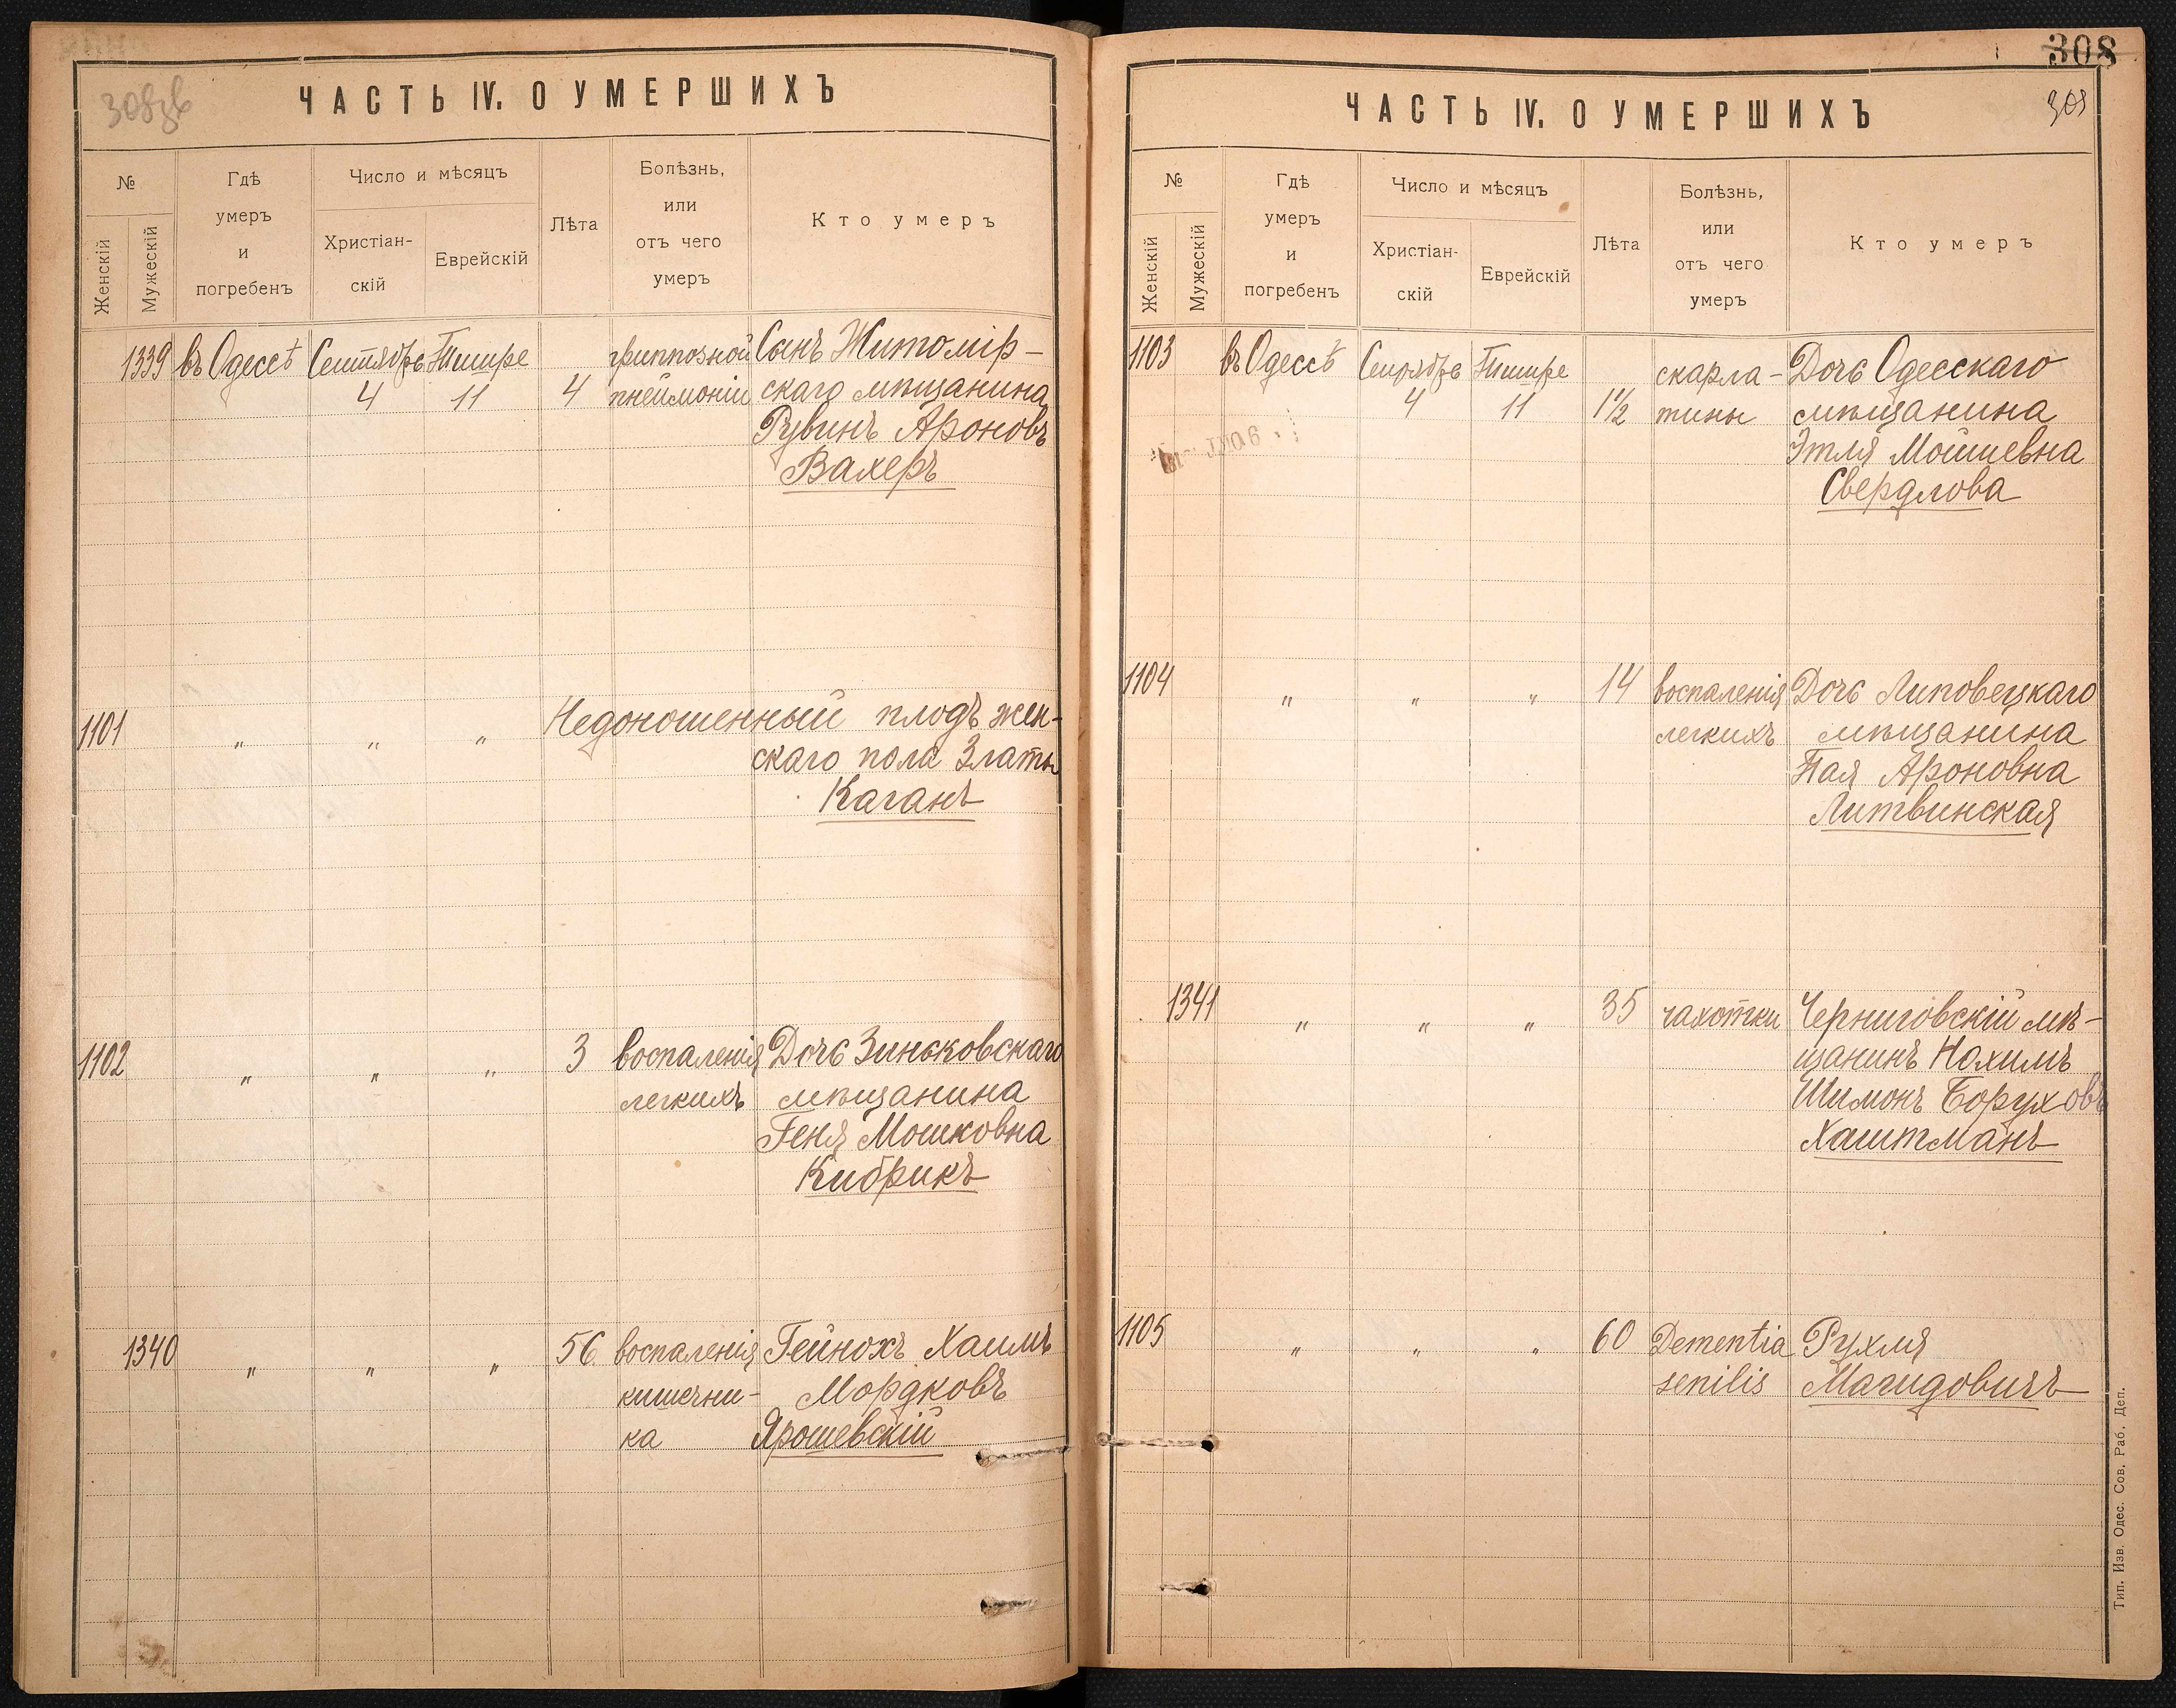 308зв
ЧАСТЬ IV. О УМЕРШИХЪ
№
Женскій
Мужескій
Гдѣ
умеръ
и
погребенъ
Число и мѣсяцъ
Христіан-
скій
Еврейскій
Лѣта
Болѣзнь,
или
отъ чего
умеръ
Кто умеръ
1339 въ Одессѣ Сентябрь Тишре гриппозной Сынъ Житомір-
4 11 4 пнеймоніи скаго мѣщанина
Рувинъ Ароновъ
Вахеръ
1101 " " " Недоношенный плодъ жен-
скаго пола Златы
Каганъ
1102 " " " 3 воспаленія Дочь Зиньковскаго
легкихъ мѣщанина
Геня Мошковна
Кибрикъ
1340 " " " 56 воспаленія Гейнохъ Хаимъ
кишечни- Мордковъ
ка Ярошевскій
308
308
ЧАСТЬ IV. О УМЕРШИХЪ
№
Женскій
Мужескій
Гдѣ
умеръ
и
погребенъ
Число и мѣсяцъ
Христіан-
скій
Еврейскій
Лѣта
Болѣзнь,
или
отъ чего
умеръ
Кто умеръ
1103 въ Одессѣ Сентябрь Тишре скарла- Дочь Одесскаго
4 11 1½ тины мѣщанина
Этля Мошиевна
Свердлова
1104 " " " 14 воспаленія Дочь Липовецкаго
легкихъ мѣщанина
Пая Ароновна
Литвинская
1341 " " " 35 чахотки Черниговскій мѣ-
щанинъ Нохимъ
Шимонъ Боруховъ
Хаштманъ
1105 " " " 60 Dementia Рухля
senilis Магидовичъ
Тип. Изв. Одес. Сов. Раб. Деп.